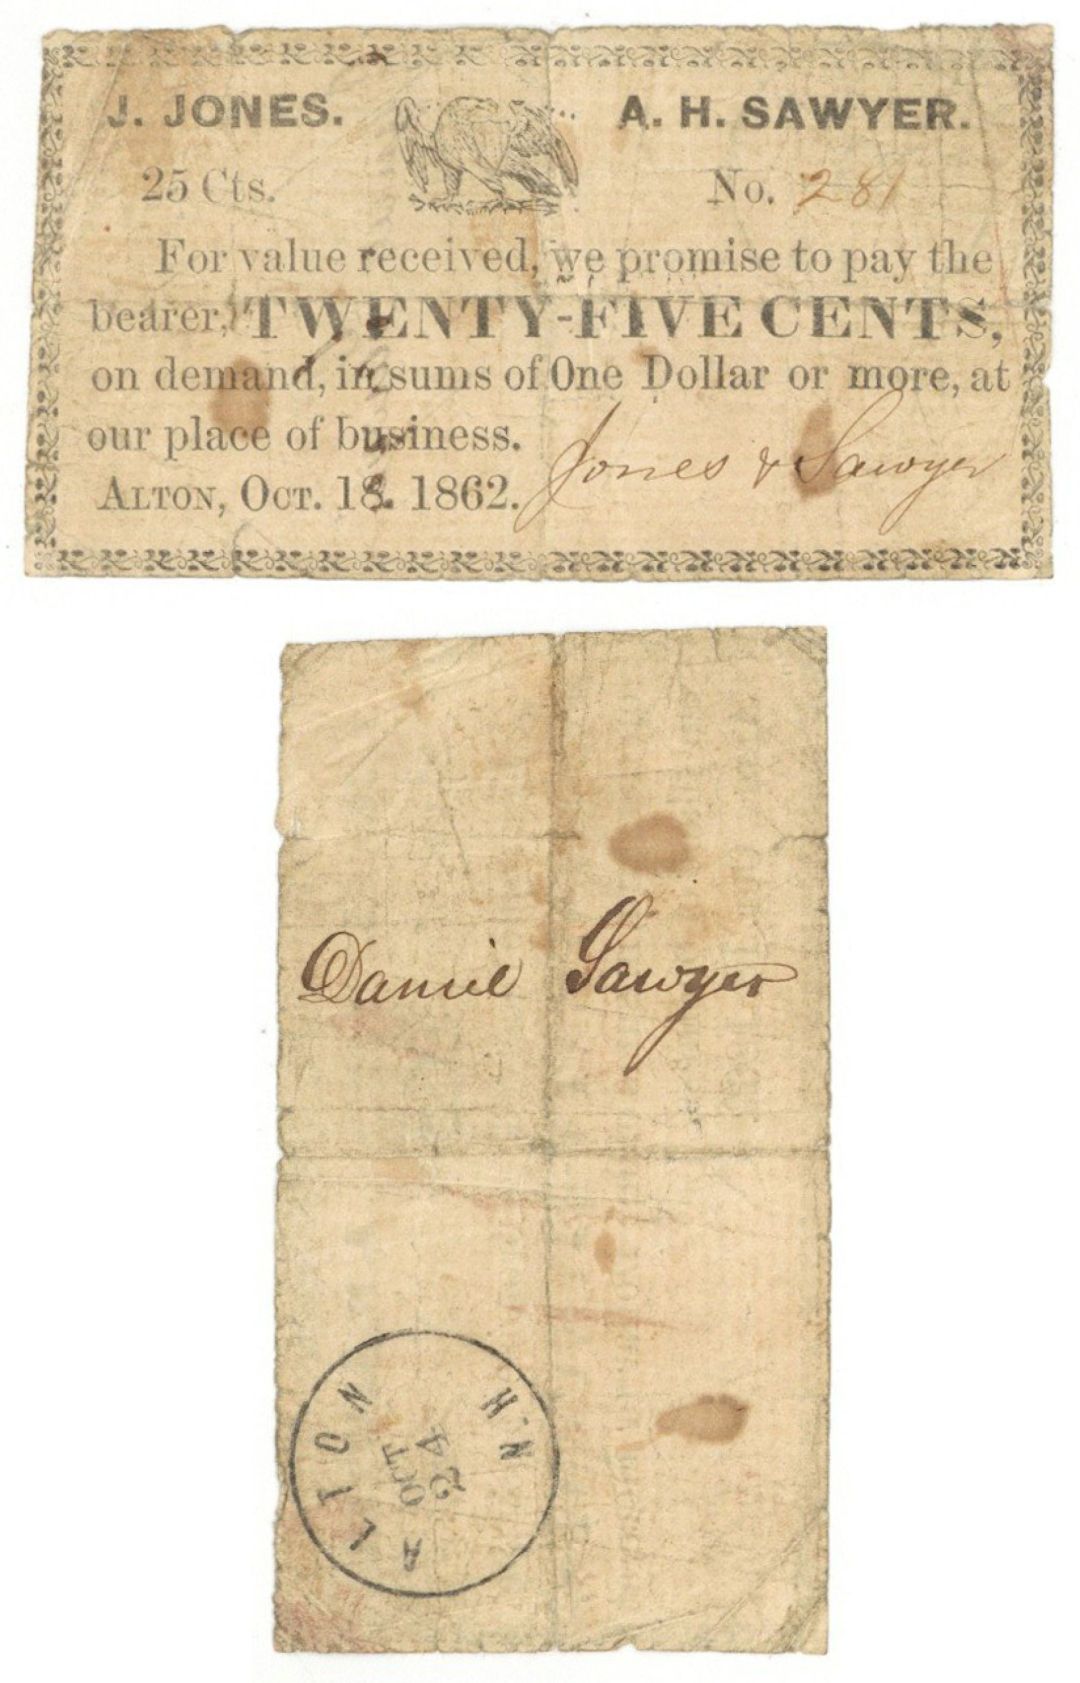 J. JONES. A. H. SAWYER.
25 Cts. No. 281
For value received, we promise to pay the
bearer, TWENTY-FIVE CENTS,
on demand, in sums of One Dollar or more, at
our place of business.
Jones & Sawyer
ALTON, OCT. 18. 1862.
Daniel Sawyer
ALTON N.H
OCT
24